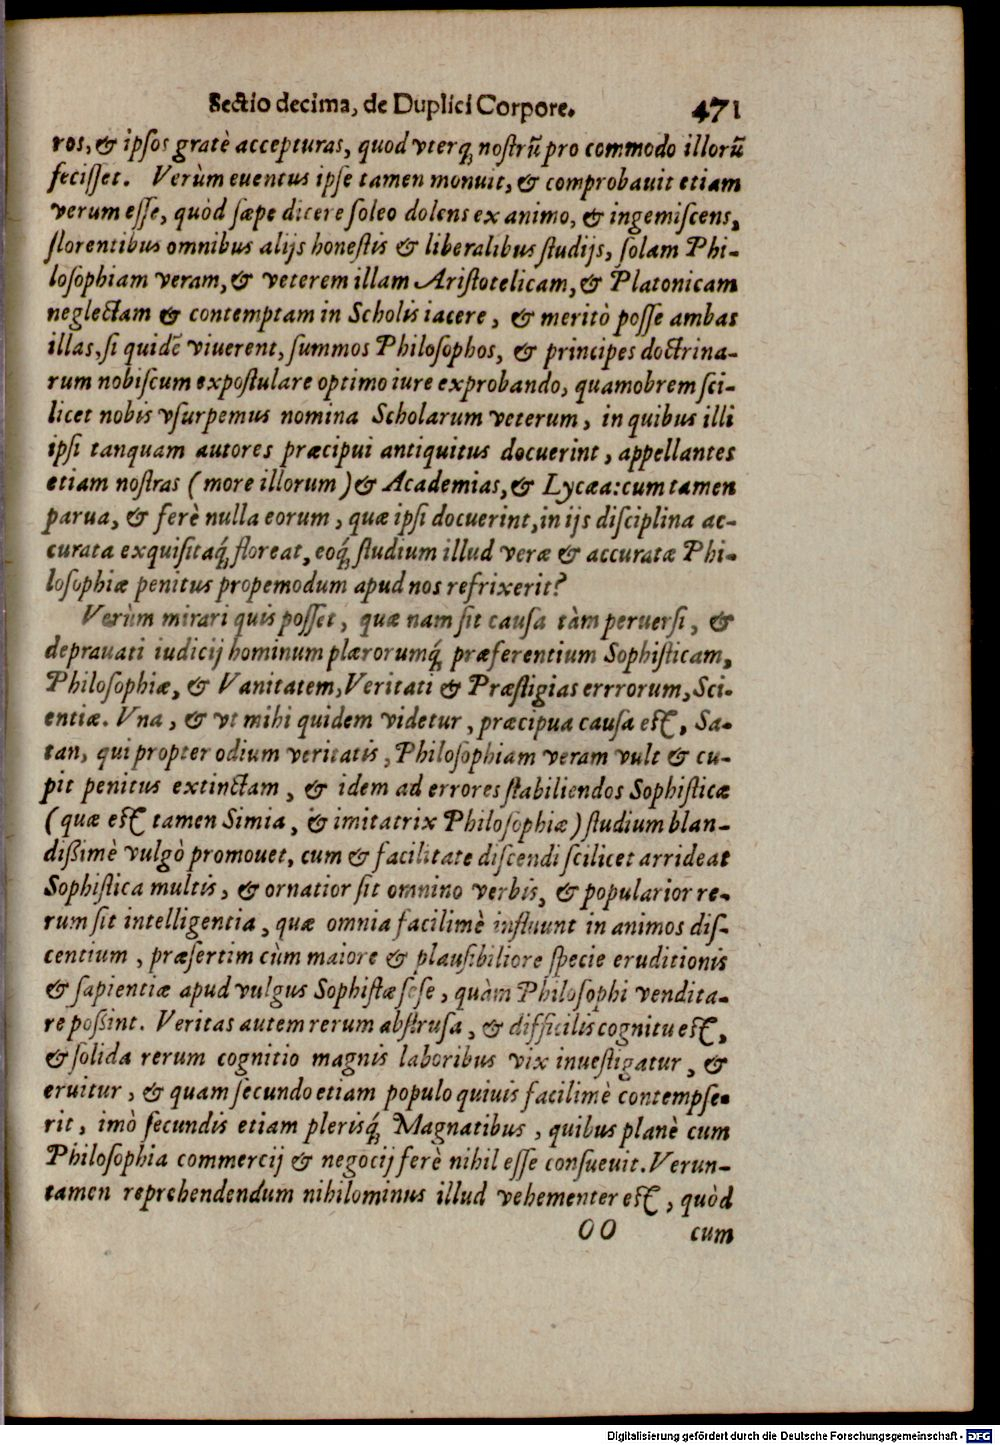 Sectio decima, de Duplici Corpore. 471
ros, & ipsos gratè accepturas, quod vterq; nostrũ pro commodo illorũ
fecisset. Verùm euentus ipse tamen monuit, & comprobauit etiam
verum esse, quòd sæpe dicere soleo dolens ex animo, & ingemiscens,
florentibus omnibus alijs honestis & liberalibus studijs, solam Phi-
losophiam veram, & veterem illam Aristotelicam, & Platonicam
neglectam & contemptam in Scholis iacere, & meritò posse ambas
illas, si quidẽ viuerent, summos Philosophos, & principes doctrina-
rum nobiscum expostulare optimo iure exprobando, quamobrem sci-
licet nobis vsurpemus nomina Scholarum veterum, in quibus illi
ipsi tanquam autores præcipui antiquitus docuerint, appellantes
etiam nostras (more illorum) & Academias, & Lycæa: cum tamen
parua, & ferè nulla eorum, quæ ipsi docuerint, in ijs disciplina ac-
curata exquisitaq́; floreat, eoq́; studium illud veræ & accuratæ Phi-
losophiæ penitus propemodum apud nos refrixerit?
Verùm mirari quis posset, quæ nam sit causa tàm peruersi, &
deprauati iudicij hominum plærorumq́; præferentium Sophisticam,
Philosophiæ, & Vanitatem, Veritati & Præstigias errrorum, Sci-
entiæ. Vna, & vt mihi quidem videtur, præcipua causa est, Sa-
tan, qui propter odium veritatis, Philosophiam veram vult & cu-
pit penitus extinctam, & idem ad errores stabiliendos Sophisticæ
(quæ est tamen Simia, & imitatrix Philosophiæ) studium blan-
dißimè vulgò promouet, cum & facilitate discendi scilicet arrideat
Sophistica multis, & ornatior sit omnino verbis, & popularior re-
rum sit intelligentia, quæ omnia facilimè influunt in animos dis-
centium, præsertim cùm maiore & plausibiliore specie eruditionis
& sapientiæ apud vulgus Sophistæ sese, quàm Philosophi vendita-
re poßint. Veritas autem rerum abstrusa, & difficilis cognitu est,
& solida rerum cognitio magnis laboribus vix inuestigatur, &
eruitur, & quam secundo etiam populo quiuis facilimè contempse-
rit, imò secundis etiam plerisq́; Magnatibus, quibus planè cum
Philosophia commercij & negocij ferè nihil esse consueuit. Verun-
tamen reprehendendum nihilominus illud vehementer est, quòd
OO cum
Digitalisierung gefördert durch die Deutsche Forschungsgemeinschaft - DFG